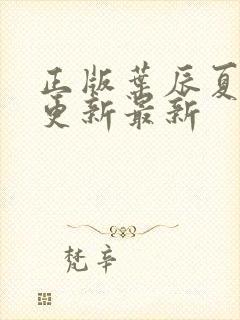 正版葉辰夏
更新最新
梵辛